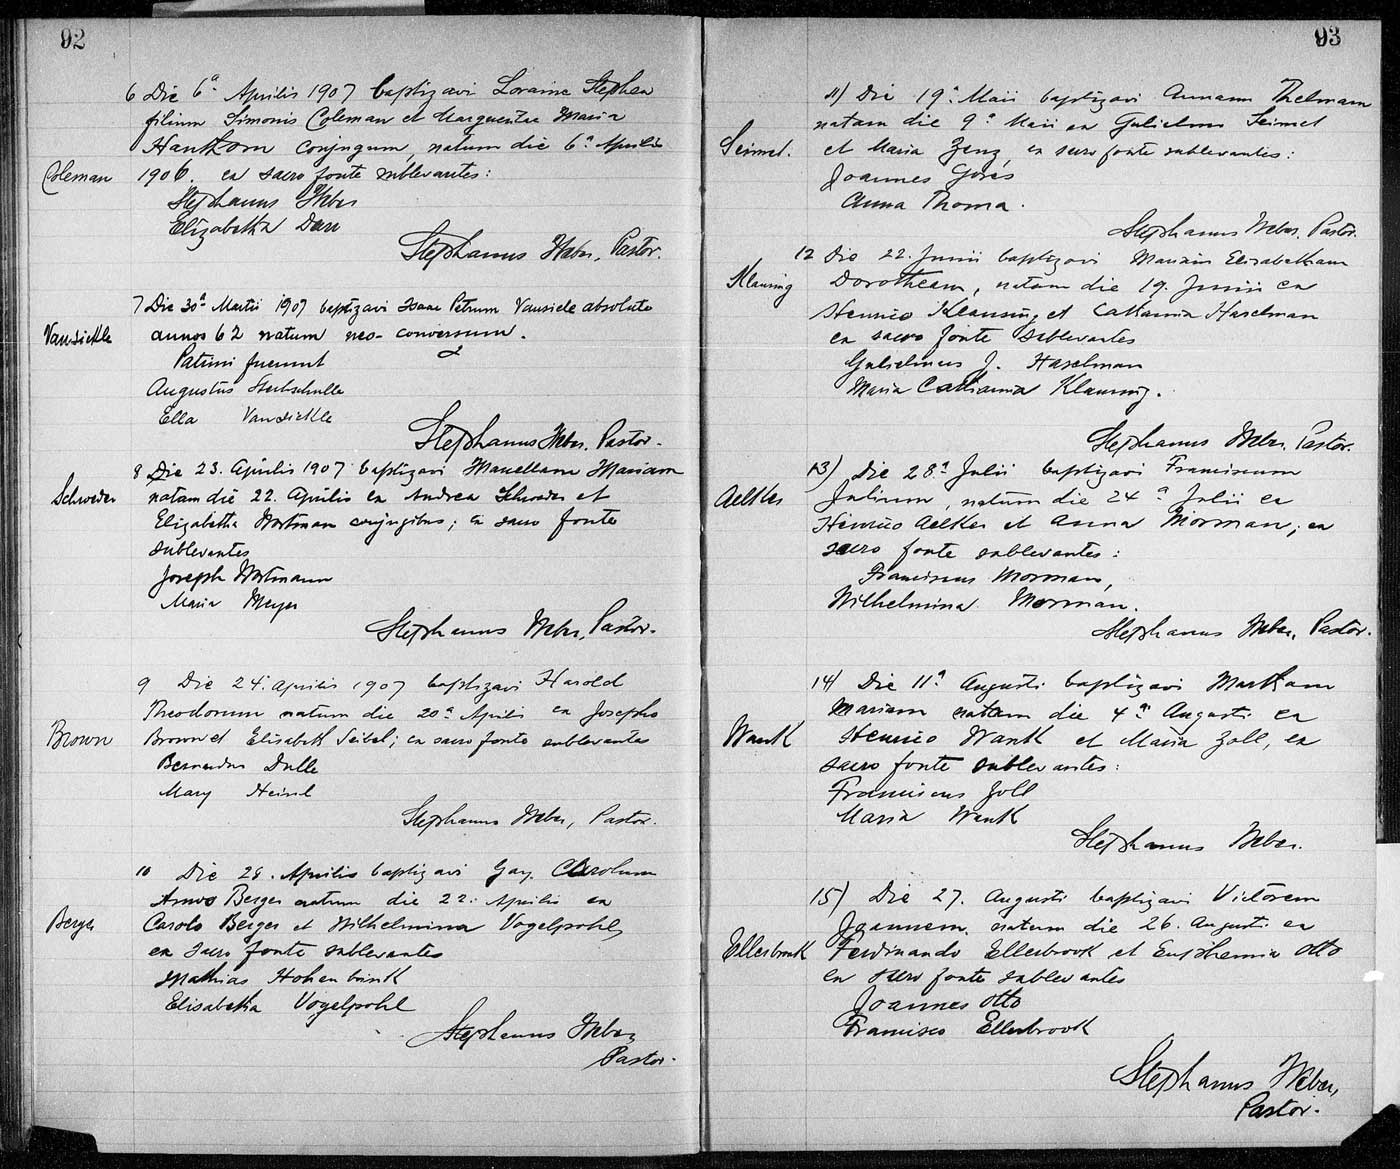 92
6 Die 6ª Aprilis 1907 baptizavi Loraine Stephen
filium Simonis Coleman et Margueritae Maria
Hankorn conjugum, natum die 6ª Aprilis
Coleman 1906. ex sacro fonte sublevantes:
Stephanus Weber
Elizabetha Darr
Stephanus Weber, Pastor.
7 Die 30ª Martii 1907 baptizavi Isaac Petrum Vansicle absolute
VanSickle annos 62 natum neo-conversum.
Patrini fuerunt
Augustus Herbschulle
Ella VanSickle
Stephanus Weber, Pastor.
8 Die 23. Aprilis 1907 baptizavi Marcellam Mariam
Schroeder natam die 22. Aprilis ex Andrea Schroeder et
Elizabetha Wortman conjugibus; ex sacro fonte
sublevantes
Joseph Wortmann
Maria Meyer
Stephanus Weber, Pastor.
9 Die 24. Aprilis 1907 baptizavi Harold
Theodorum natum die 20ª Aprilis ex Josepho
Brown Brown et Elisabeth Seibel; ex sacro fonte sublevantes
Bernardus Dulle
Mary Heisel
Stephanus Weber, Pastor.
10 Die 28. Aprilis baptizavi Guy Carolum
Amos Berger natum die 22. Aprilis ex
Berger Carolo Berger et Wilhelmina Vogelpohl,
ex sacro fonte sublevantes
Mathias Hohenbrink
Elisabetha Vogelpohl
Stephanus Weber,
Pastor.
93
11) Die 19ª Maii baptizavi Annam Thelmam
natam die 9ª Maii ex Gulielmo Seimet
Seimet. et Maria Zenz, ex sacro fonte sublevantes:
Joannes Gores
Anna Thoma.
Stephanus Weber, Pastor.
12 Die 22. Junii baptizavi Mariam Elisabetham
Klausing Dorotheam, natam die 19. Junii ex
Henrico Klausing et Catharina Haselman
ex sacro fonte sublevantes
Gulielmus J. Haselman
Maria Catharina Klausing.
Stephanus Weber, Pastor.
13) Die 28ª Julii baptizavi Franciscum
Aelker Julium, natum die 24ª Julii ex
Henrico Aelker et Anna Morman; ex
sacro fonte sublevantes:
Franciscus Morman,
Wilhelmina Morman.
Stephanus Weber, Pastor.
14) Die 11ª Augusti baptizavi Martham
Mariam natam die 4ª Augusti ex
Wank Henrico Wank et Maria Zoll, ex
sacro fonte sublevantes:
Franciscus Zoll
Maria Wank
Stephanus Weber.
15) Die 27. Augusti baptizavi Victorem
Joannem, natum die 26. Augusti ex
Ellerbrock Ferdinando Ellerbrook et Euphemia Otto
ex sacro fonte sublevantes
Joannes Otto
Francisco Ellerbrook
Stephanus Weber,
Pastor.